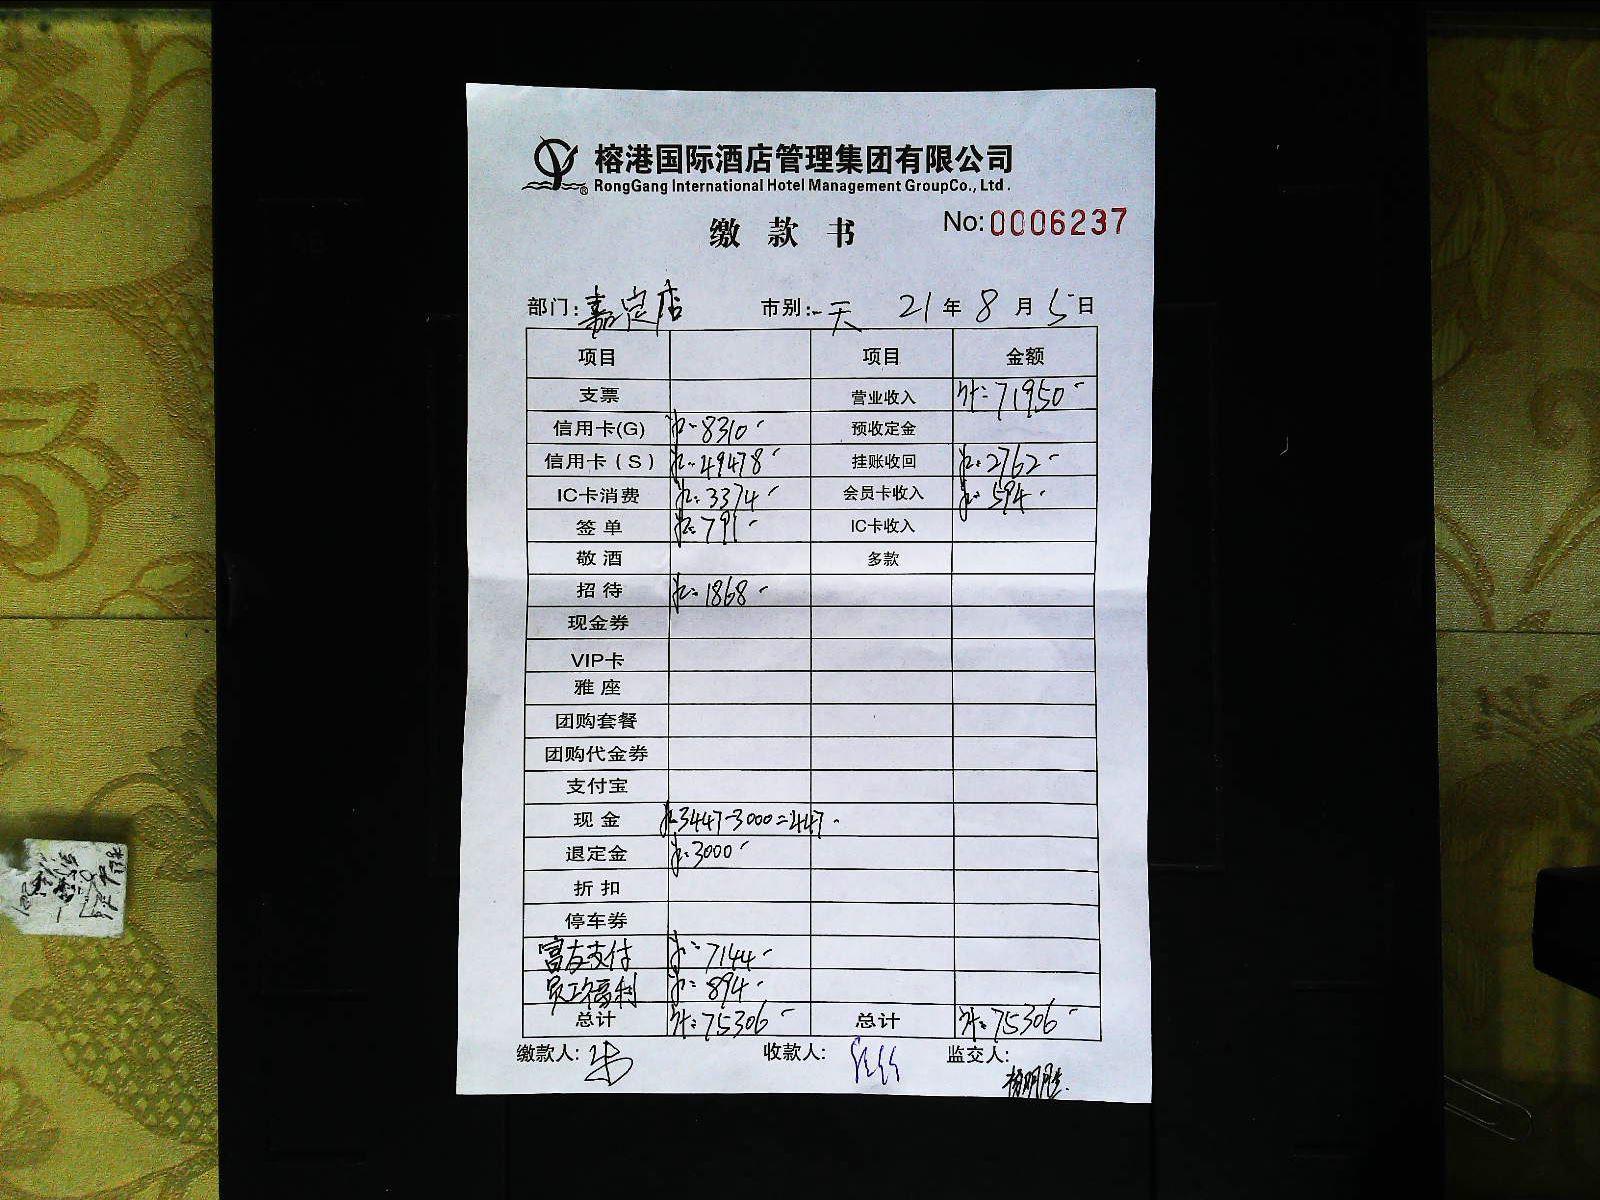 榕港国际酒店管理集团有限公司
RongGang International Hotel Management GroupCo., Ltd.
缴款书 No:0006237
部门:嘉定店 市别:一天 21年8月5日
项目 项目 金额
支票 营业收入 计:71950
信用卡(G) 8310 预收定金
信用卡(S) 49478 挂账收回 2762
IC卡消费 3374 会员卡收入 594
签单 791 IC卡收入
敬酒 多款
招待 1868
现金券
VIP卡
雅座
团购套餐
团购代金券
支付宝
现金 3447-3000=447
退定金 3000
折扣
停车券
富友支付 7144
员工福利 894
总计 计:75306 总计 计:75306
缴款人: 收款人: 监交人: